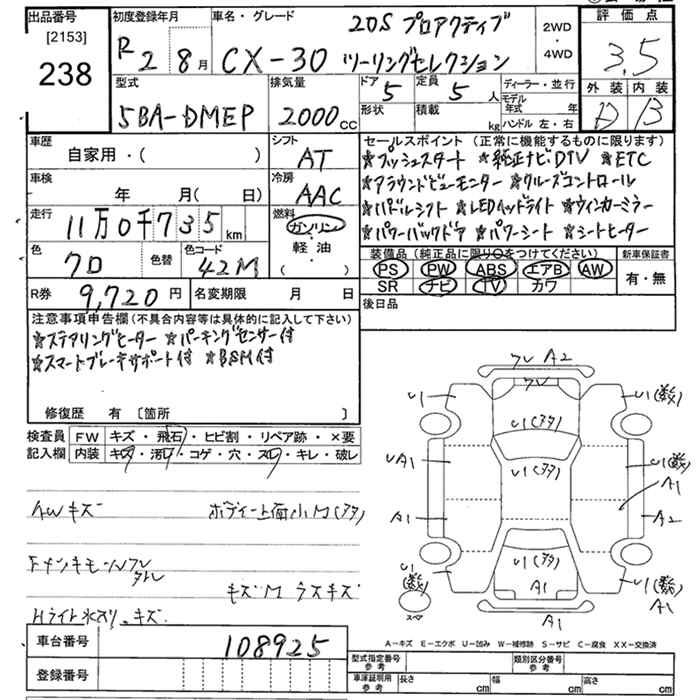 出品番号 初度登録年月 車名・グレード 20S プロアクティブ 2WD 評価点
[2153] R2 8月 CX-30 ツーリングセレクション ・4WD 3.5
238
型式 排気量 ドア 定員 ディーラー・並行 外装 内装
5BA-DMEP 2000 CC 5 5人 モデル年式 年 D B
形状 積載 kg ハンドル 左・右
車歴 シフト セールスポイント(正常に機能するものに限ります)
自家用・( ) AT ☆プッシュスタート ☆純正ナビDTV ☆ETC
車検 冷房 ☆アラウンドビューモニター ☆クルーズコントロール
年 月( 日) AAC ☆パドルシフト ☆LEDヘッドライト ☆ウィンカーミラー
走行 11万0千735km 燃料 ☆パワーバックドア ☆パワーシート ☆シートヒーター
ガソリン
色 色替 色コード 軽油・ 装備品(純正品に限り○をつけてください) 新車保証書
クロ 42M ( ) PS PW ABS エアB AW 有・無
SR ナビ TV カワ
R券 9,720円 名変期限 月 日 後日品
注意事項申告欄(不具合内容等は具体的に記入して下さい)
☆ステアリングヒーター ☆パーキングセンサー付
☆スマートブレーキサポート付 ☆BSM付
修復歴 有 〔箇所 〕
検査員 FW キズ・飛石・ヒビ割・リペア跡・×要
記入欄 内装 キズ・汚レ・コゲ・穴・スレ・キレ・破レ
AWキズ ボディー上面小M(タタ)
キズM ラスキズ
Hライト水スリ、キズ
ワレ A2
ワレ
U1 U1(タタ) U1(数)
UA1 U1(タタ) U1(数)
A1
A1 A2
U1(数) U1(タタ) U1(数)
A1 A1
スペア A1
A-キズ E-エクボ U-凹み W-補修跡 S-サビ C-腐食 XX-交換済
車台番号 108925
登録番号
型式指定番号 参考 類別区分番号 参考
車庫証明用 参考 長さ cm 幅 cm 高さ cm